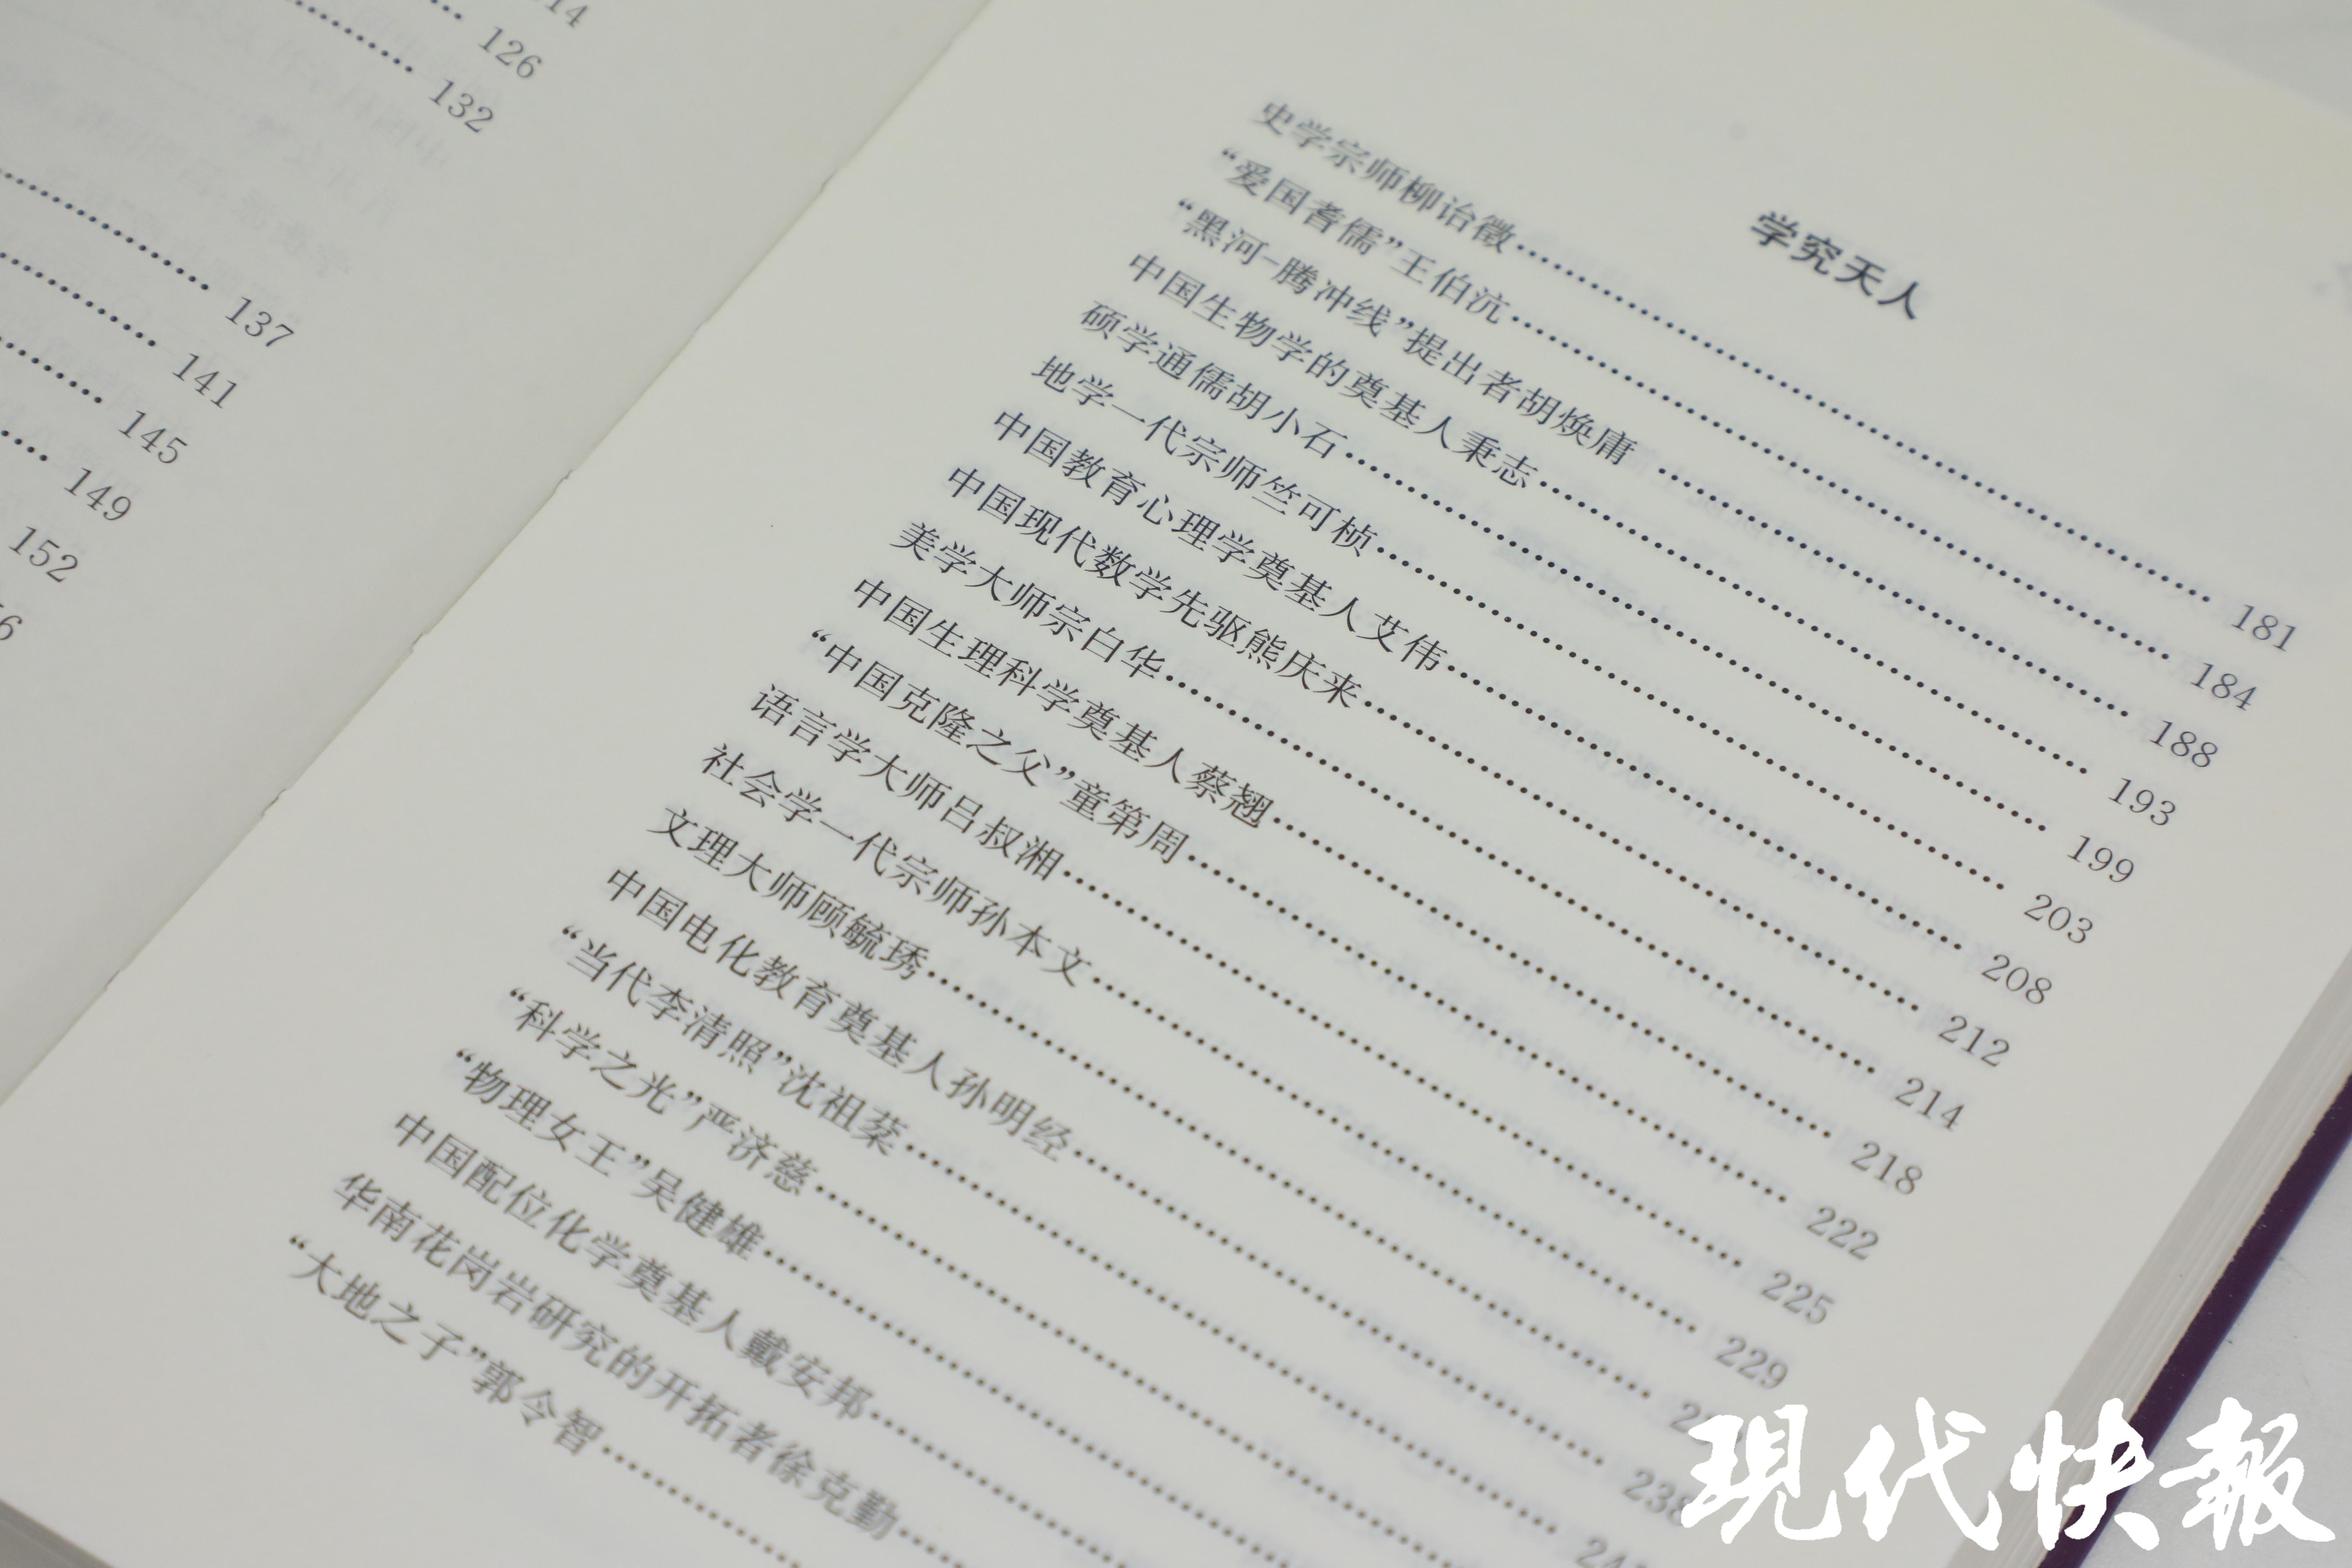 126
132
137
141
145
149
152
学究天人
史学宗师柳诒徵 …… 181
“爱国耆儒”王伯沆 …… 184
“黑河-腾冲线”提出者胡焕庸 …… 188
中国生物学的奠基人秉志 …… 193
硕学通儒胡小石 …… 199
地学一代宗师竺可桢 …… 203
中国教育心理学奠基人艾伟 …… 208
中国现代数学先驱熊庆来 …… 212
美学大师宗白华 …… 214
中国生理科学奠基人蔡翘 …… 218
“中国克隆之父”童第周 …… 222
语言学大师吕叔湘 …… 225
社会学一代宗师孙本文 …… 229
文理大师顾毓琇 ……
中国电化教育奠基人孙明经 …… 238
“当代李清照”沈祖棻 ……
“科学之光”严济慈 ……
“物理女王”吴健雄 ……
中国配位化学奠基人戴安邦 ……
华南花岗岩研究的开拓者徐克勤 ……
“大地之子”郭令智 ……
现代快報